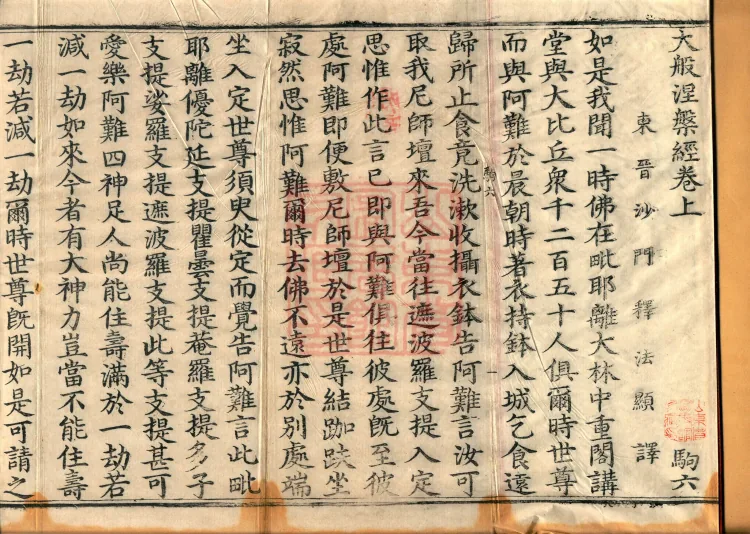 大般涅槃經卷上 駒六
東晉沙門釋法顯譯
如是我聞一時佛在毗耶離大林中重閣講
堂與大比丘衆千二百五十人俱爾時世尊
而與阿難於晨朝時著衣持鉢入城乞食遠
歸所止食竟洗漱收攝衣鉢告阿難言汝可
取我尼師壇來吾今當往遮波羅支提入定
思惟作此言已即與阿難俱往彼處旣至彼
處阿難即便敷尼師壇於是世尊結跏趺坐
寂然思惟阿難爾時去佛不遠亦於別處端
坐入定世尊須臾從定而覺告阿難言此毗
耶離優陀延支提瞿曇支提菴羅支提多子
支提娑羅支提遮波羅支提此等支提甚可
愛樂阿難四神足人尚能住壽滿於一劫若
減一劫如來今者有大神力豈當不能住壽
一劫若減一劫爾時世尊旣開如是可請之
駒六
一